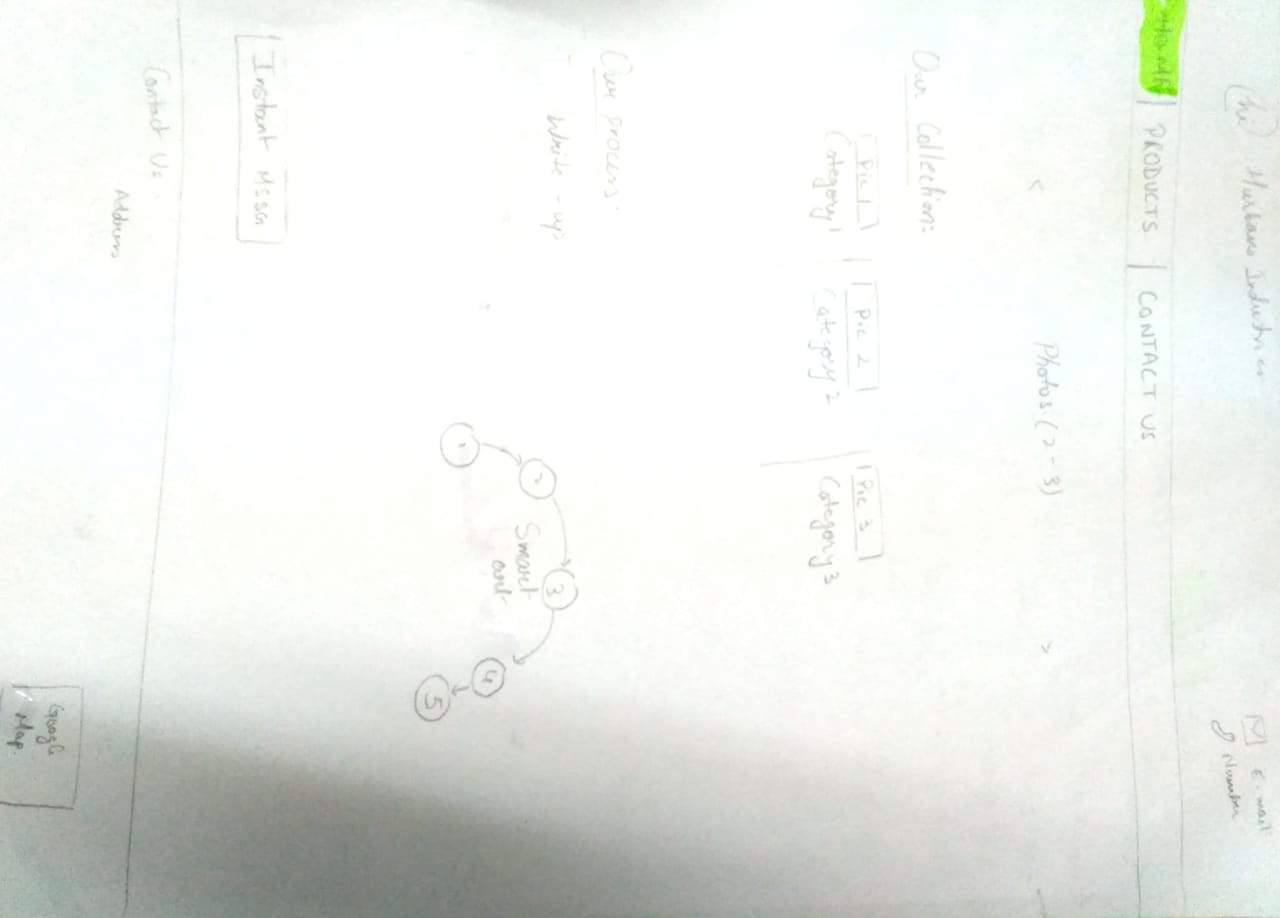 (hi)
Industries
E-mail
Number
HOME | PRODUCTS | CONTACT US
< Photos (2-3) >
Our Collection:
Pic 1 Pic 2 Pic 3
Category 1 Category 2 Category 3
Our process:
- Write-up
1 2 3 4 5
Smart
art
Instant Mssg
Contact Us:
Address
Google
Map.